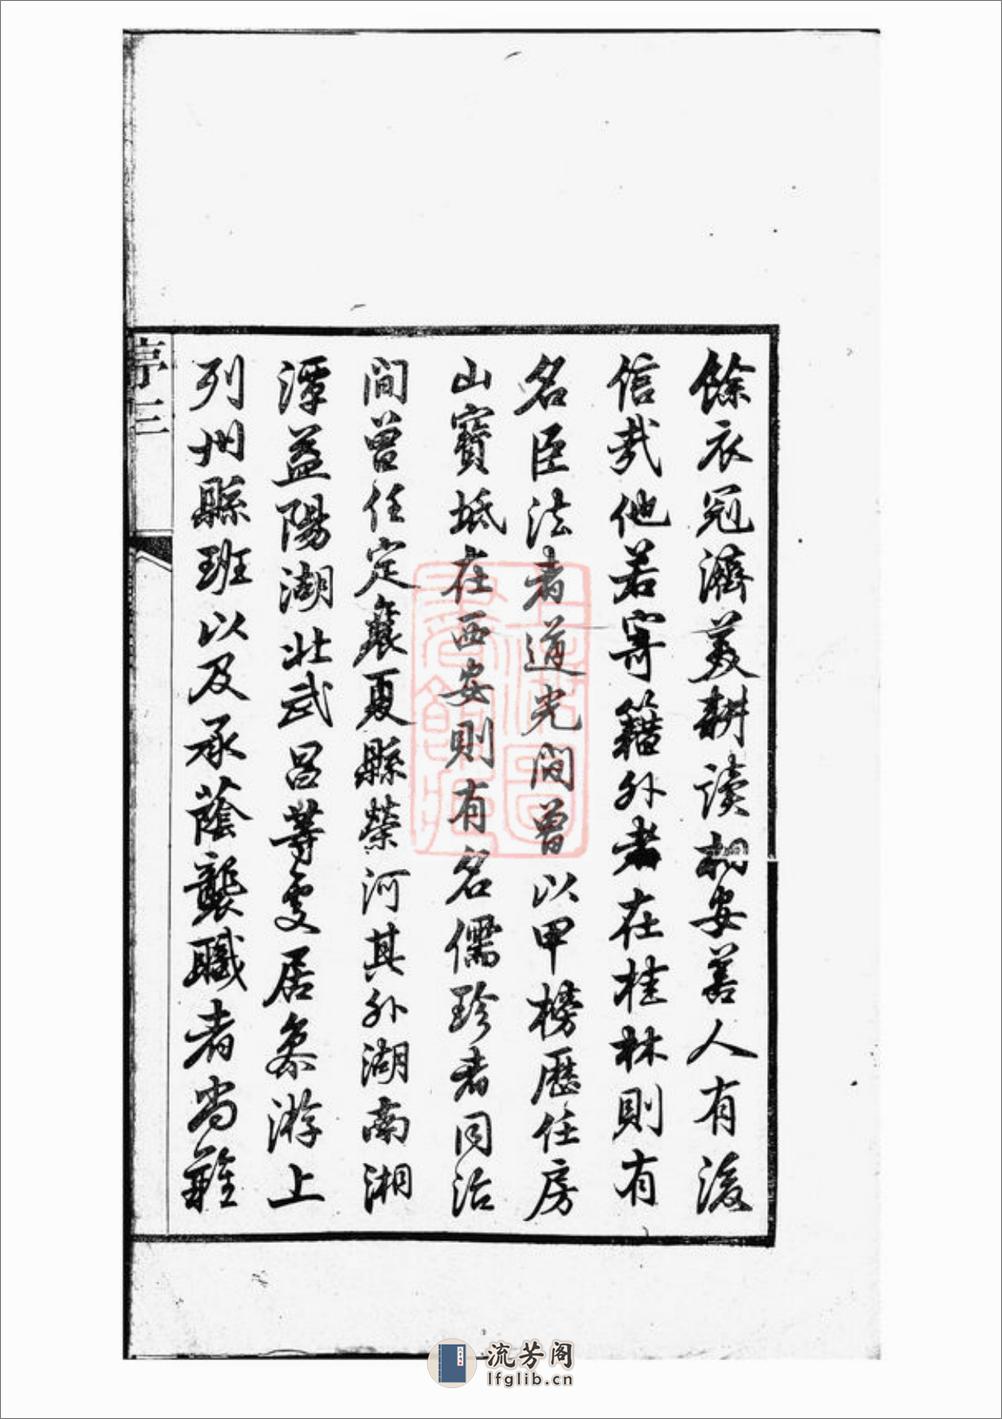 餘衣冠濟美耕讀相安善人有後
信哉他若寄籍外者在桂林則有
名臣法者道光間曾以甲榜歷任房
山寶坻在西安則有名儒珍者同治
間曾任定襄夏縣榮河其外湖南湘
潭益陽湖北武昌等處居多游上
列州縣班以及承蔭襲職者尚難
序三
上海圖書館藏
流芳阁
lfglib.cn